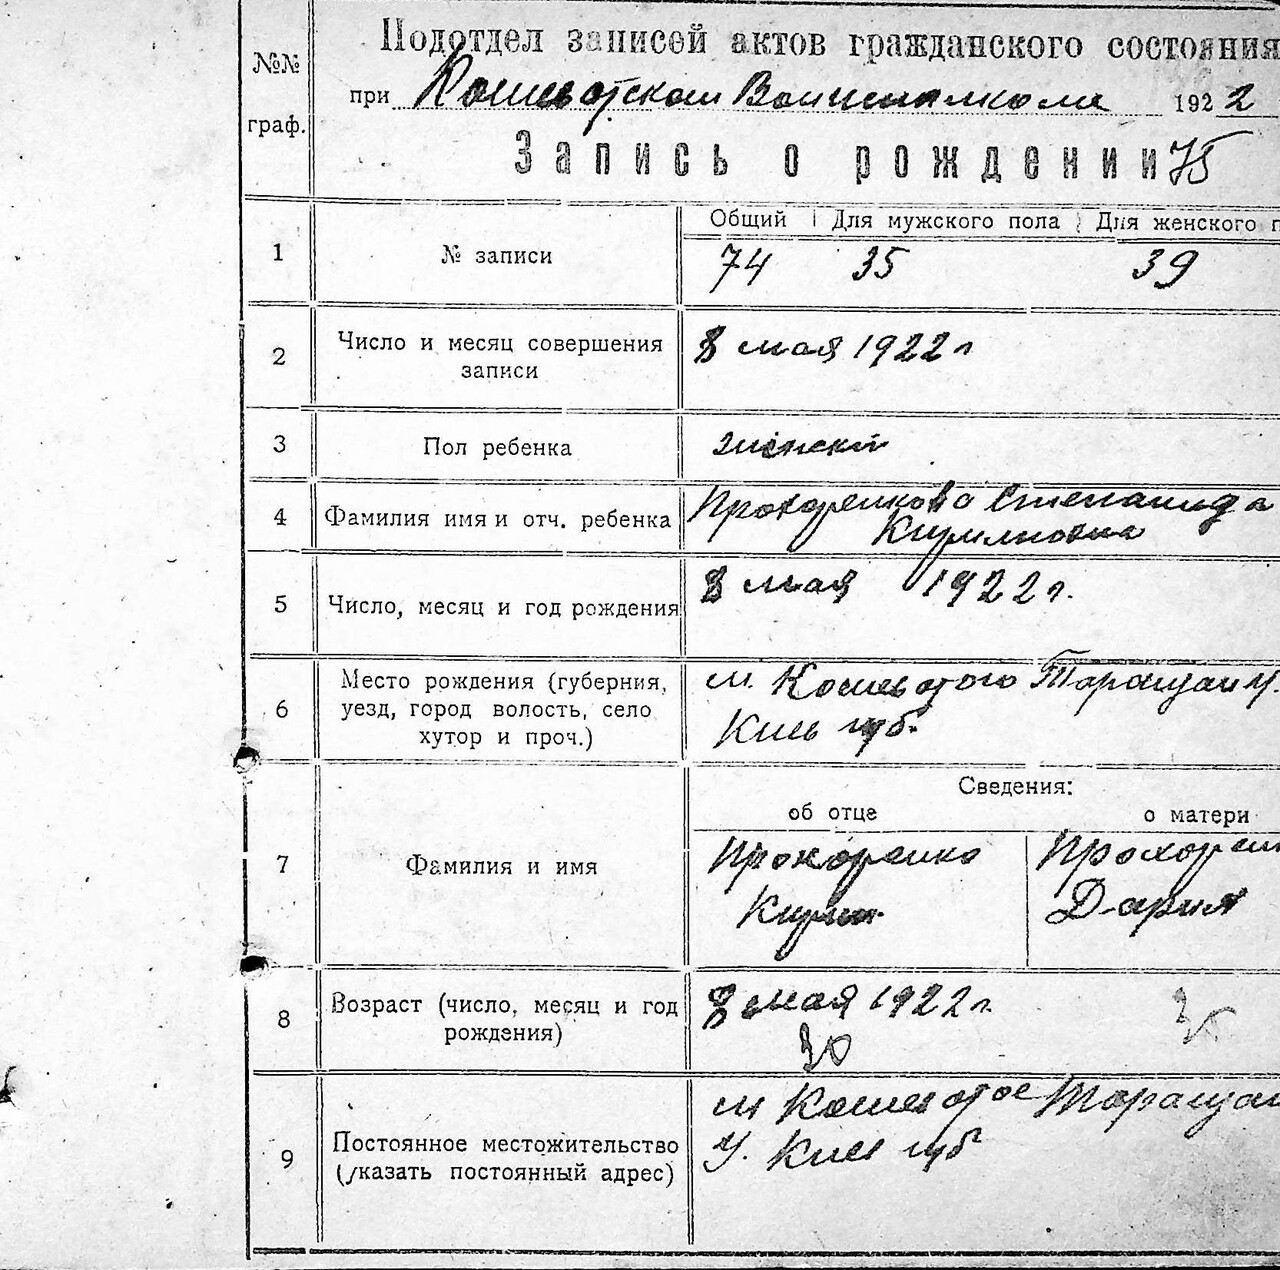 Подотдел записей актов гражданского состояния
№№ граф.
при Кошеватском Волисполкоме 1922
Запись о рождении 75
Общий Для мужского пола Для женского п
1 № записи 74 35 39
2 Число и месяц совершения 8 мая 1922 г
записи
3 Пол ребенка женский
4 Фамилия имя и отч. ребенка Прохоренкова Степанида
Кириловна
5 Число, месяц и год рождения 8 мая 1922 г.
6 Место рождения (губерния, м. Кошеватого Таращан у.
уезд, город волость, село Киев губ.
хутор и проч.)
Сведения:
об отце о матери
7 Фамилия и имя Прохоренко Прохорен
Кирил Дария
8 Возраст (число, месяц и год 8 мая 1922 г.
рождения) 30
9 Постоянное местожительство м Кошеватое Таращан
(указать постоянный адрес) у. Киев губ